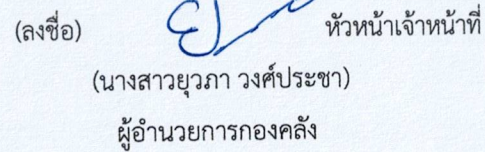 (ลงชื่อ) หัวหน้าเจ้าหน้าที่
(นางสาวยุวภา วงศ์ประชา)
ผู้อำนวยการกองคลัง